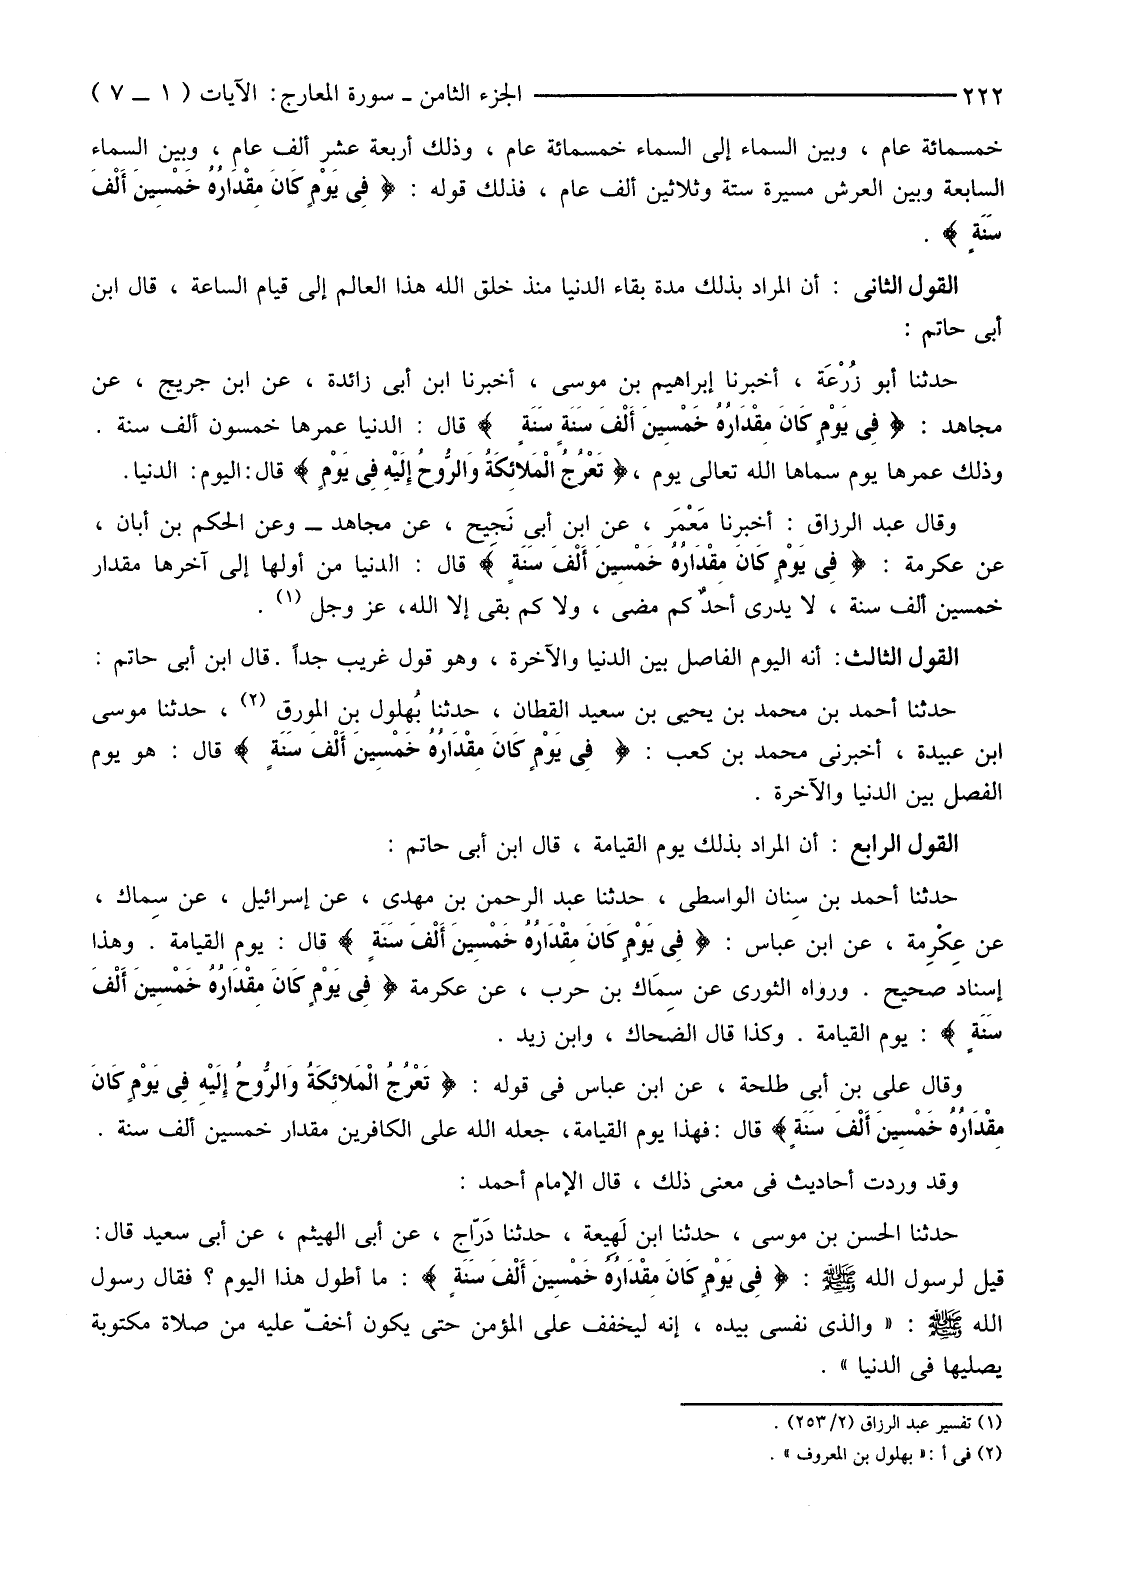 ٢٢٢ ــــــــــــــــــــ الجزء الثامن ـ سورة المعارج: الآيات ( ١ ــ ٧ )
خمسمائة عام ، وبين السماء إلى السماء خمسمائة عام ، وذلك أربعة عشر ألف عام ، وبين السماء
السابعة وبين العرش مسيرة ستة وثلاثين ألف عام ، فذلك قوله : ﴿ فِى يَوْمٍ كَانَ مِقْدَارُهُ خَمْسِينَ أَلْفَ
سَنَةٍ ﴾ .
القول الثانى : أن المراد بذلك مدة بقاء الدنيا منذ خلق الله هذا العالم إلى قيام الساعة ، قال ابن
أبى حاتم :
حدثنا أبو زُرْعَة ، أخبرنا إبراهيم بن موسى ، أخبرنا ابن أبى زائدة ، عن ابن جريج ، عن
مجاهد : ﴿ فِى يَوْمٍ كَانَ مِقْدَارُهُ خَمْسِينَ أَلْفَ سَنَةٍ سَنَةٍ ﴾ قال : الدنيا عمرها خمسون ألف سنة .
وذلك عمرها يوم سماها الله تعالى يوم ،﴿ تَعْرُجُ الْمَلائِكَةُ وَالرُّوحُ إِلَيْهِ فِى يَوْمٍ ﴾ قال:اليوم: الدنيا.
وقال عبد الرزاق : أخبرنا مَعْمَر ، عن ابن أبى نَجِيح ، عن مجاهد ــ وعن الحكم بن أبان ،
عن عكرمة : ﴿ فِى يَوْمٍ كَانَ مِقْدَارُهُ خَمْسِينَ أَلْفَ سَنَةٍ ﴾ قال : الدنيا من أولها إلى آخرها مقدار
خمسين ألف سنة ، لا يدرى أحدٌ كم مضى ، ولا كم بقى إلا الله، عز وجل (١) .
القول الثالث: أنه اليوم الفاصل بين الدنيا والآخرة ، وهو قول غريب جداً .قال ابن أبى حاتم :
حدثنا أحمد بن محمد بن يحيى بن سعيد القطان ، حدثنا بُهلول بن المورق (٢) ، حدثنا موسى
ابن عبيدة ، أخبرنى محمد بن كعب : ﴿ فِى يَوْمٍ كَانَ مِقْدَارُهُ خَمْسِينَ أَلْفَ سَنَةٍ ﴾ قال : هو يوم
الفصل بين الدنيا والآخرة .
القول الرابع : أن المراد بذلك يوم القيامة ، قال ابن أبى حاتم :
حدثنا أحمد بن سِنان الواسطى ، حدثنا عبد الرحمن بن مهدى ، عن إسرائيل ، عن سِماك ،
عن عِكْرِمة ، عن ابن عباس : ﴿ فِى يَوْمٍ كَانَ مِقْدَارُهُ خَمْسِينَ أَلْفَ سَنَةٍ ﴾ قال : يوم القيامة . وهذا
إسناد صحيح . ورواه الثورى عن سِمَاك بن حرب ، عن عكرمة ﴿ فِى يَوْمٍ كَانَ مِقْدَارُهُ خَمْسِينَ أَلْفَ
سَنَةٍ ﴾ : يوم القيامة . وكذا قال الضحاك ، وابن زيد .
وقال على بن أبى طلحة ، عن ابن عباس فى قوله : ﴿ تَعْرُجُ الْمَلائِكَةُ وَالرُّوحُ إِلَيْهِ فِى يَوْمٍ كَانَ
مِقْدَارُهُ خَمْسِينَ أَلْفَ سَنَةٍ﴾ قال :فهذا يوم القيامة، جعله الله على الكافرين مقدار خمسين ألف سنة .
وقد وردت أحاديث فى معنى ذلك ، قال الإمام أحمد :
حدثنا الحسن بن موسى ، حدثنا ابن لَهِيعة ، حدثنا دَرّاج ، عن أبى الهيثم ، عن أبى سعيد قال:
قيل لرسول الله ﷺ : ﴿ فِى يَوْمٍ كَانَ مِقْدَارُهُ خَمْسِينَ أَلْفَ سَنَةٍ ﴾ : ما أطول هذا اليوم ؟ فقال رسول
الله ﷺ : « والذى نفسى بيده ، إنه ليخفف على المؤمن حتى يكون أخفّ عليه من صلاة مكتوبة
يصليها فى الدنيا » .
(١) تفسير عبد الرزاق (٢/ ٢٥٣) .
(٢) فى أ :« بهلول بن المعروف » .